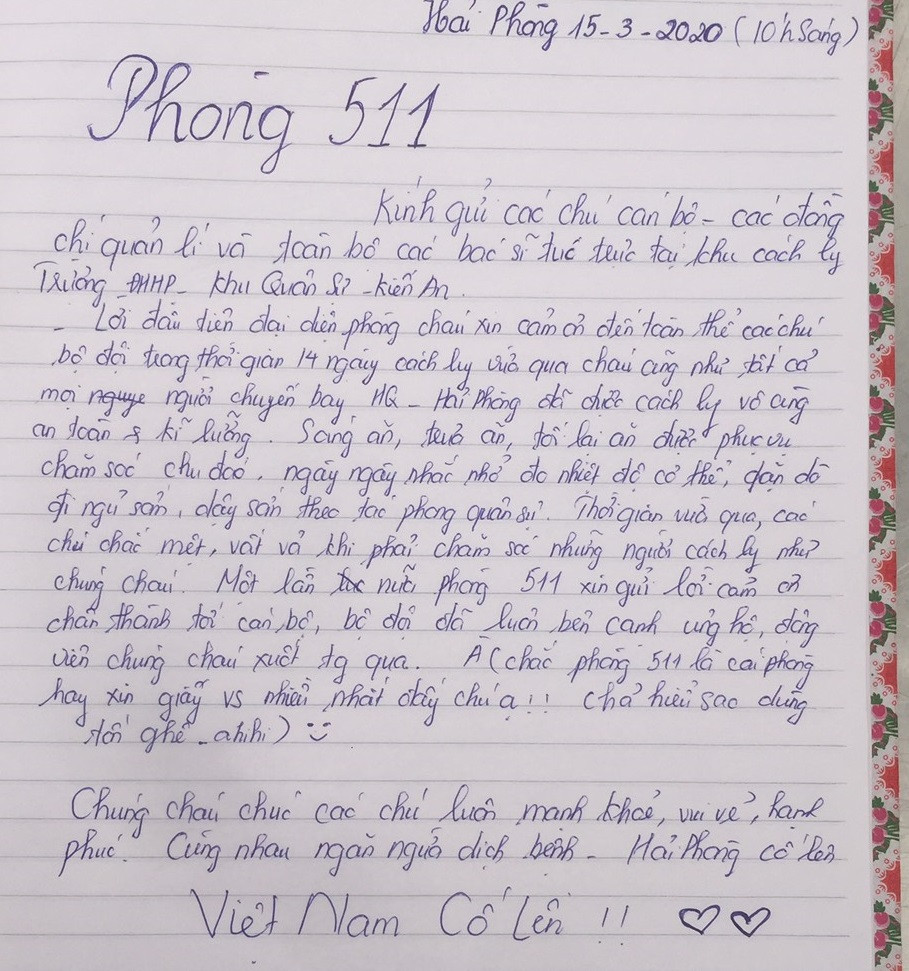 Hải Phòng 15-3-2020 (10h sáng)
Phòng 511
Kính gửi các chú cán bộ - các đồng
chí quản lí và toàn bộ các bác sĩ túc trực tại khu cách ly
Trường ĐHHP - Khu Quân Sự - Kiến An.
- Lời đầu tiên đại diện phòng cháu xin cảm ơn đến toàn thể các chú
bộ đội trong thời gian 14 ngày cách ly vừa qua cháu cũng như tất cả
mọi nguye người chuyến bay HQ - Hải Phòng đã được cách ly vô cùng
an toàn & kĩ lưỡng. Sáng ăn, trưa ăn, tối lại ăn được phục vụ
chăm sóc chu đáo, ngày ngày nhắc nhở đo nhiệt độ cơ thể, dặn dò
đi ngủ sớm, dậy sớm theo tác phong quân sự. Thời gian vừa qua, các
chú chắc mệt, vất vả khi phải chăm sóc những người cách ly như
chúng cháu. Một lần nữa phòng 511 xin gửi lời cảm ơn
chân thành tới cán bộ, bộ đội đã luôn bên cạnh ủng hộ, động
viên chúng cháu suốt tg qua. À (chắc phòng 511 là cái phòng
hay xin giấy vs nhiều nhất đấy chú ạ!! chả hiểu sao dùng
tốn ghê. ahihi) :)
Chúng cháu chúc các chú luôn mạnh khoẻ, vui vẻ, hạnh
phúc. Cùng nhau ngăn ngừa dịch bệnh - Hải Phòng cố lên
Việt Nam Cố Lên !! ♡♡